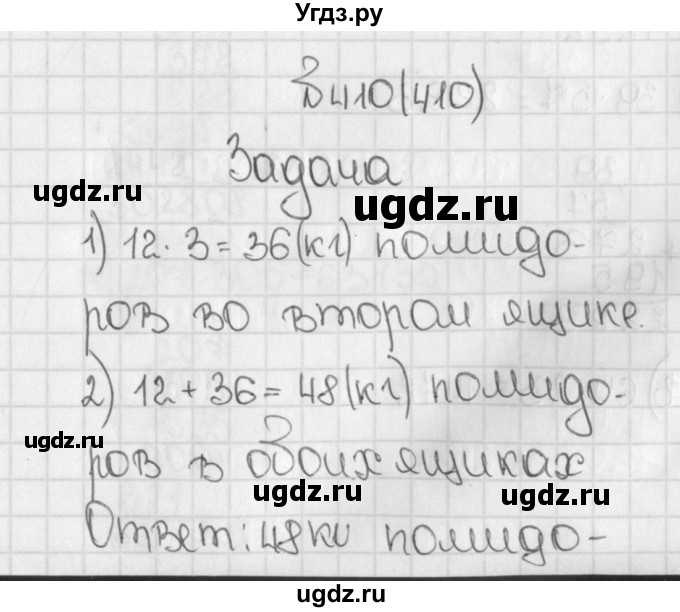 Угдз.ру
В410(410)
Задача
ugdz.ru
ugdz.ru
1) 12·3=36(кг) помидо-
ров во втором ящике.
2) 12+36=48(кг) помидо-
ugdz.ru
ров в обоих ящиках
ugdz.ru
ugdz.ru
Ответ: 48кг помидо-
ugdz.ru
ugdz.ru